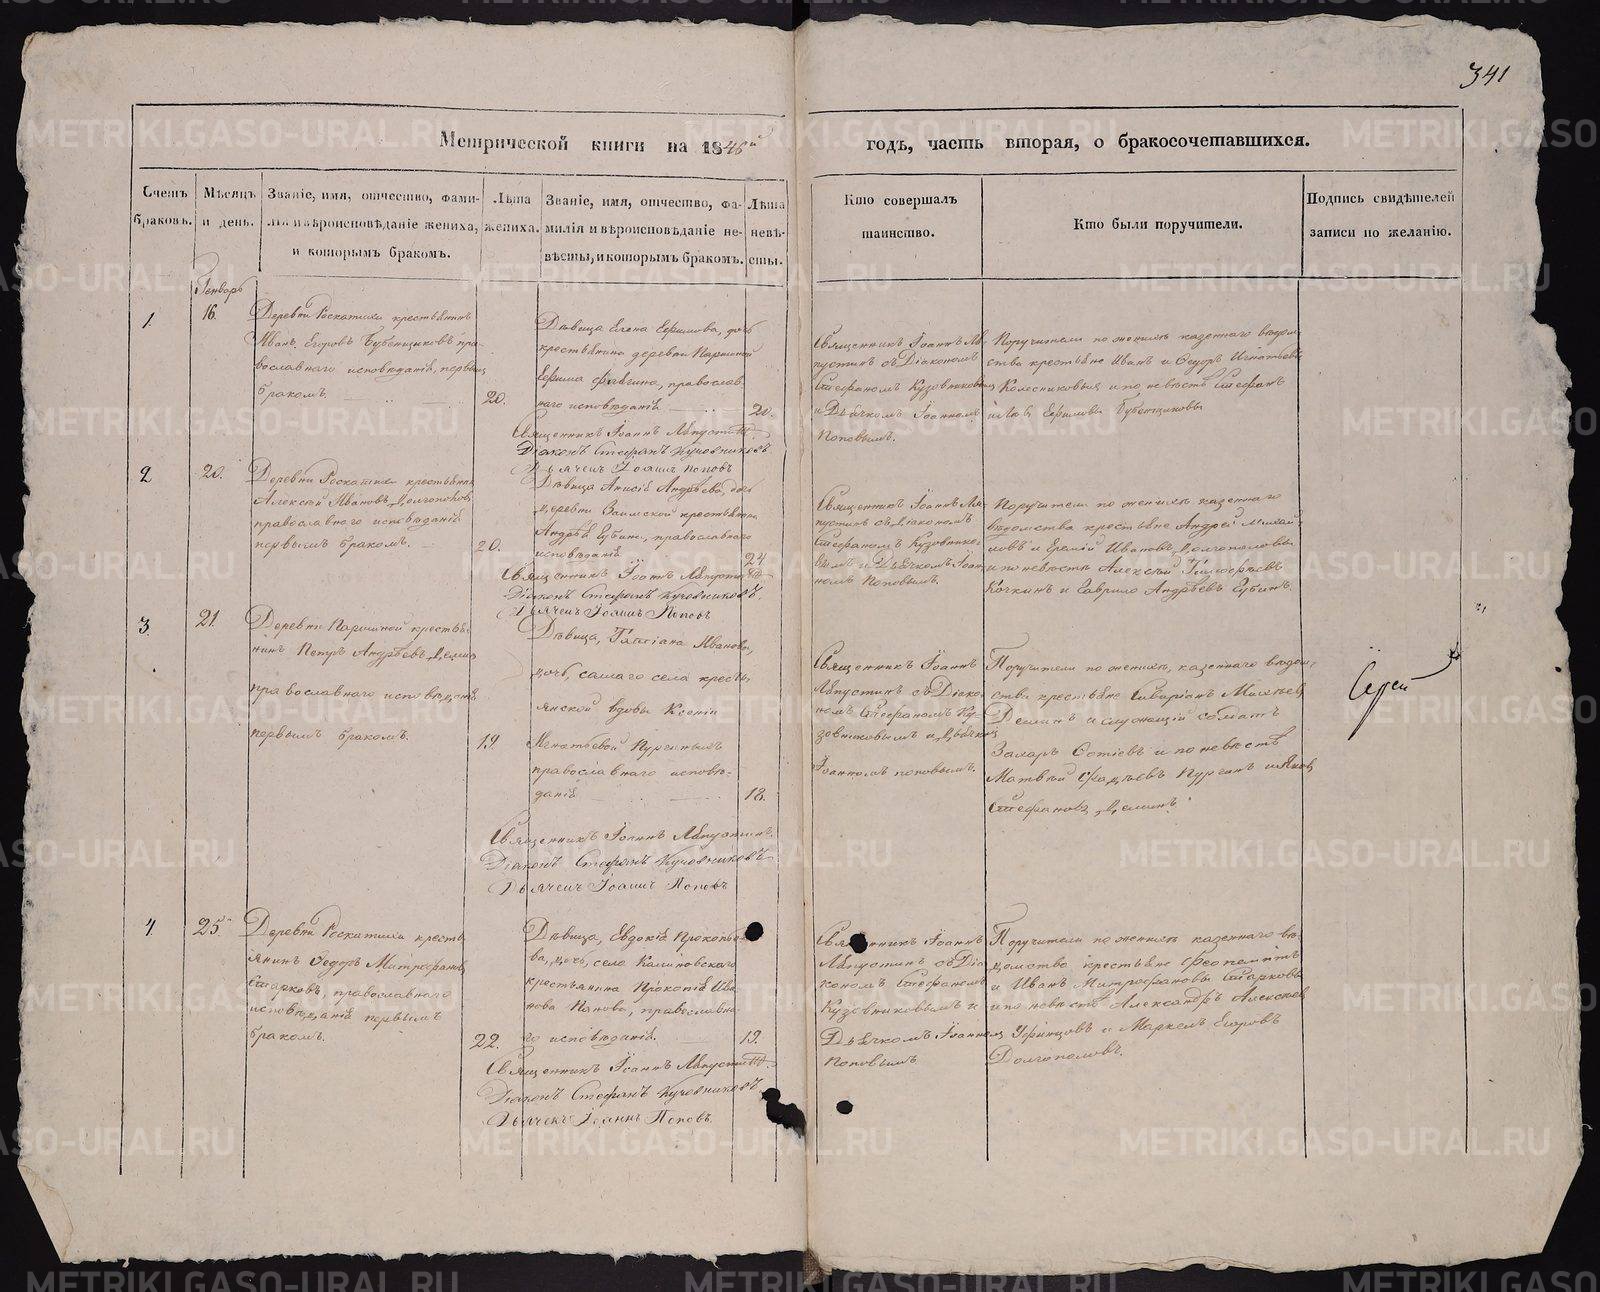 341
Метрической книги на 1846й годъ, часть вторая, о бракосочетавшихся.
Счетъ браковъ.
Мѣсяцъ и день.
Званіе, имя, отчество, фами-
лія и вѣроисповѣданіе жениха,
и которымъ бракомъ.
Лѣта
жениха.
Званіе, имя, отчество, фа-
милія и вѣроисповѣданіе не-
вѣсты, и которымъ бракомъ.
Лѣта
невѣ-
сты.
Кто совершалъ
таинство.
Кто были поручители.
Подпись свидѣтелей
записи по желанію.
Генварь
1.
16.
Деревни Роскатихи крестьянинъ
Иванъ Егоровъ Бубенщиковъ пра-
вославнаго исповѣданія, первымъ
бракомъ.
20.
Дѣвица Елена Ефимова, дочь
крестьянина деревни Паршиной
Ефима, православ-
наго исповѣданія
20.
Священникъ Іоаннъ Ляпустинъ.
Діаконъ Стефанъ Кузовниковъ
Дьячекъ Іоаннъ Поповъ
Священникъ Іоаннъ Ля-
пустинъ съ Діакономъ
Стефаномъ Кузовниковымъ
и Дьячкомъ Іоанномъ
Поповымъ.
Поручители по женихѣ казеннаго вѣдом-
ства крестьяне Иванъ и Ѳедоръ Игнатьевы
Колесниковы и по невѣстѣ Стефанъ
Ефимовы Бубенщиковы
2
20.
Деревни Роскатихи крестьянинъ
Алексѣй Ивановъ Долгополовъ
православнаго исповѣданія
первымъ бракомъ.
20.
Дѣвица Анисія Андрѣева, дочь
деревни Заимской крестьянина
Андрѣя Губина, православнаго
исповѣданія
24
Священникъ Іоаннъ Ляпустинъ
Діаконъ Стефанъ Кузовниковъ.
Дьячекъ Іоаннъ Поповъ
Священникъ Іоаннъ Ля-
пустинъ съ Діакономъ
Стефаномъ Кузовнико-
вымъ и Дьячкомъ Іоан-
номъ Поповымъ.
Поручители по женихѣ казеннаго
вѣдомства крестьяне Андрей Михай-
ловъ и Еремѣй Ивановъ Долгополовы
и по невѣстѣ Алексѣй Тимофѣевъ
Кочкинъ и Гаврило Андрѣевъ Губинъ.
3.
21.
Деревни Паршиной крестья-
нинъ Петръ Андрѣевъ Деминъ
православнаго исповѣданія
первымъ бракомъ.
19.
Дѣвица, Татіана Иванова,
дочь, самаго села кресть-
янской вдовы Ксеніи
Игнатьевой Пургиныхъ
православнаго исповѣ-
данія
18.
Священникъ Іоаннъ Ляпустинъ.
Діаконъ Стефанъ Кузовниковъ
Дьячекъ Іоаннъ Поповъ
Священникъ Іоаннъ
Ляпустинъ съ Діако-
номъ Стефаномъ Ку-
зовниковымъ и Дьячкомъ
Іоанномъ Поповымъ.
Поручители по женихѣ, казеннаго вѣдом-
ства крестьяне
Деминъ и служащій солдатъ
Захаръ и по невѣстѣ
Матвѣй Фадѣевъ Пургинъ и Яковъ
Стефановъ Деминъ.
Сергей
4.
25.
Деревни Роскатихи кресть-
янинъ Ѳедоръ Митрофановъ
Старковъ, православнаго
исповѣданія первымъ
бракомъ.
22.
Дѣвица, Евдокія Прокопье-
ва, дочь, села Калиновскаго
крестьянина Прокопія Ива-
нова Панова, православна-
го исповѣданія.
19.
Священникъ Іоаннъ Ляпустинъ.
Діаконъ Стефанъ Кузовниковъ.
Дьячекъ Іоаннъ Поповъ.
Священникъ Іоаннъ
Ляпустинъ съ Діа-
кономъ Стефаномъ
Кузовниковымъ и
Дьячкомъ Іоанномъ
Поповымъ
Поручители по женихѣ казеннаго вѣ-
домства крестьяне Феопемптъ
и Иванъ Митрофановы Старковы
и по невѣстѣ Александръ Алексѣевъ
Уфинцовъ и Маркелъ Егоровъ
Долгополовъ.
METRIKI.GASO-URAL.RU